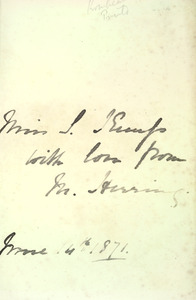 Miss S. Kemp
with love from
M. Herring
4th 1871.